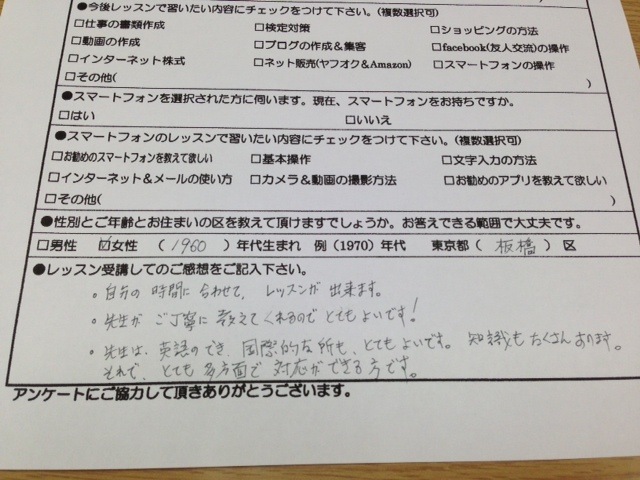 ●今後レッスンで習いたい内容にチェックをつけて下さい。(複数選択可)
□仕事の書類作成 □検定対策 □ショッピングの方法
□動画の作成 □ブログの作成&集客 □facebook(友人交流)の操作
□インターネット株式 □ネット販売(ヤフオク&Amazon) □スマートフォンの操作
□その他( )
●スマートフォンを選択された方に伺います。現在、スマートフォンをお持ちですか。
□はい □いいえ
●スマートフォンのレッスンで習いたい内容にチェックをつけて下さい。(複数選択可)
□お勧めのスマートフォンを教えて欲しい □基本操作 □文字入力の方法
□インターネット&メールの使い方 □カメラ&動画の撮影方法 □お勧めのアプリを教えて欲しい
□その他( )
●性別とご年齢とお住まいの区を教えて頂けますでしょうか。お答えできる範囲で大丈夫です。
□男性 ☑女性 ( 1960 )年代生まれ 例(1970)年代 東京都( 板橋 )区
●レッスン受講してのご感想をご記入下さい。
。自分の時間に合わせて、レッスンが出来ます。
・先生がご丁寧に教えてくれるのでとてもよいです!
・先生は、英語ので き、国際的な所も、とてもよいです。知識もたくさんあります。
それで、とても多方面で対応ができる方です。
アンケートにご協力して頂きありがとうございます。